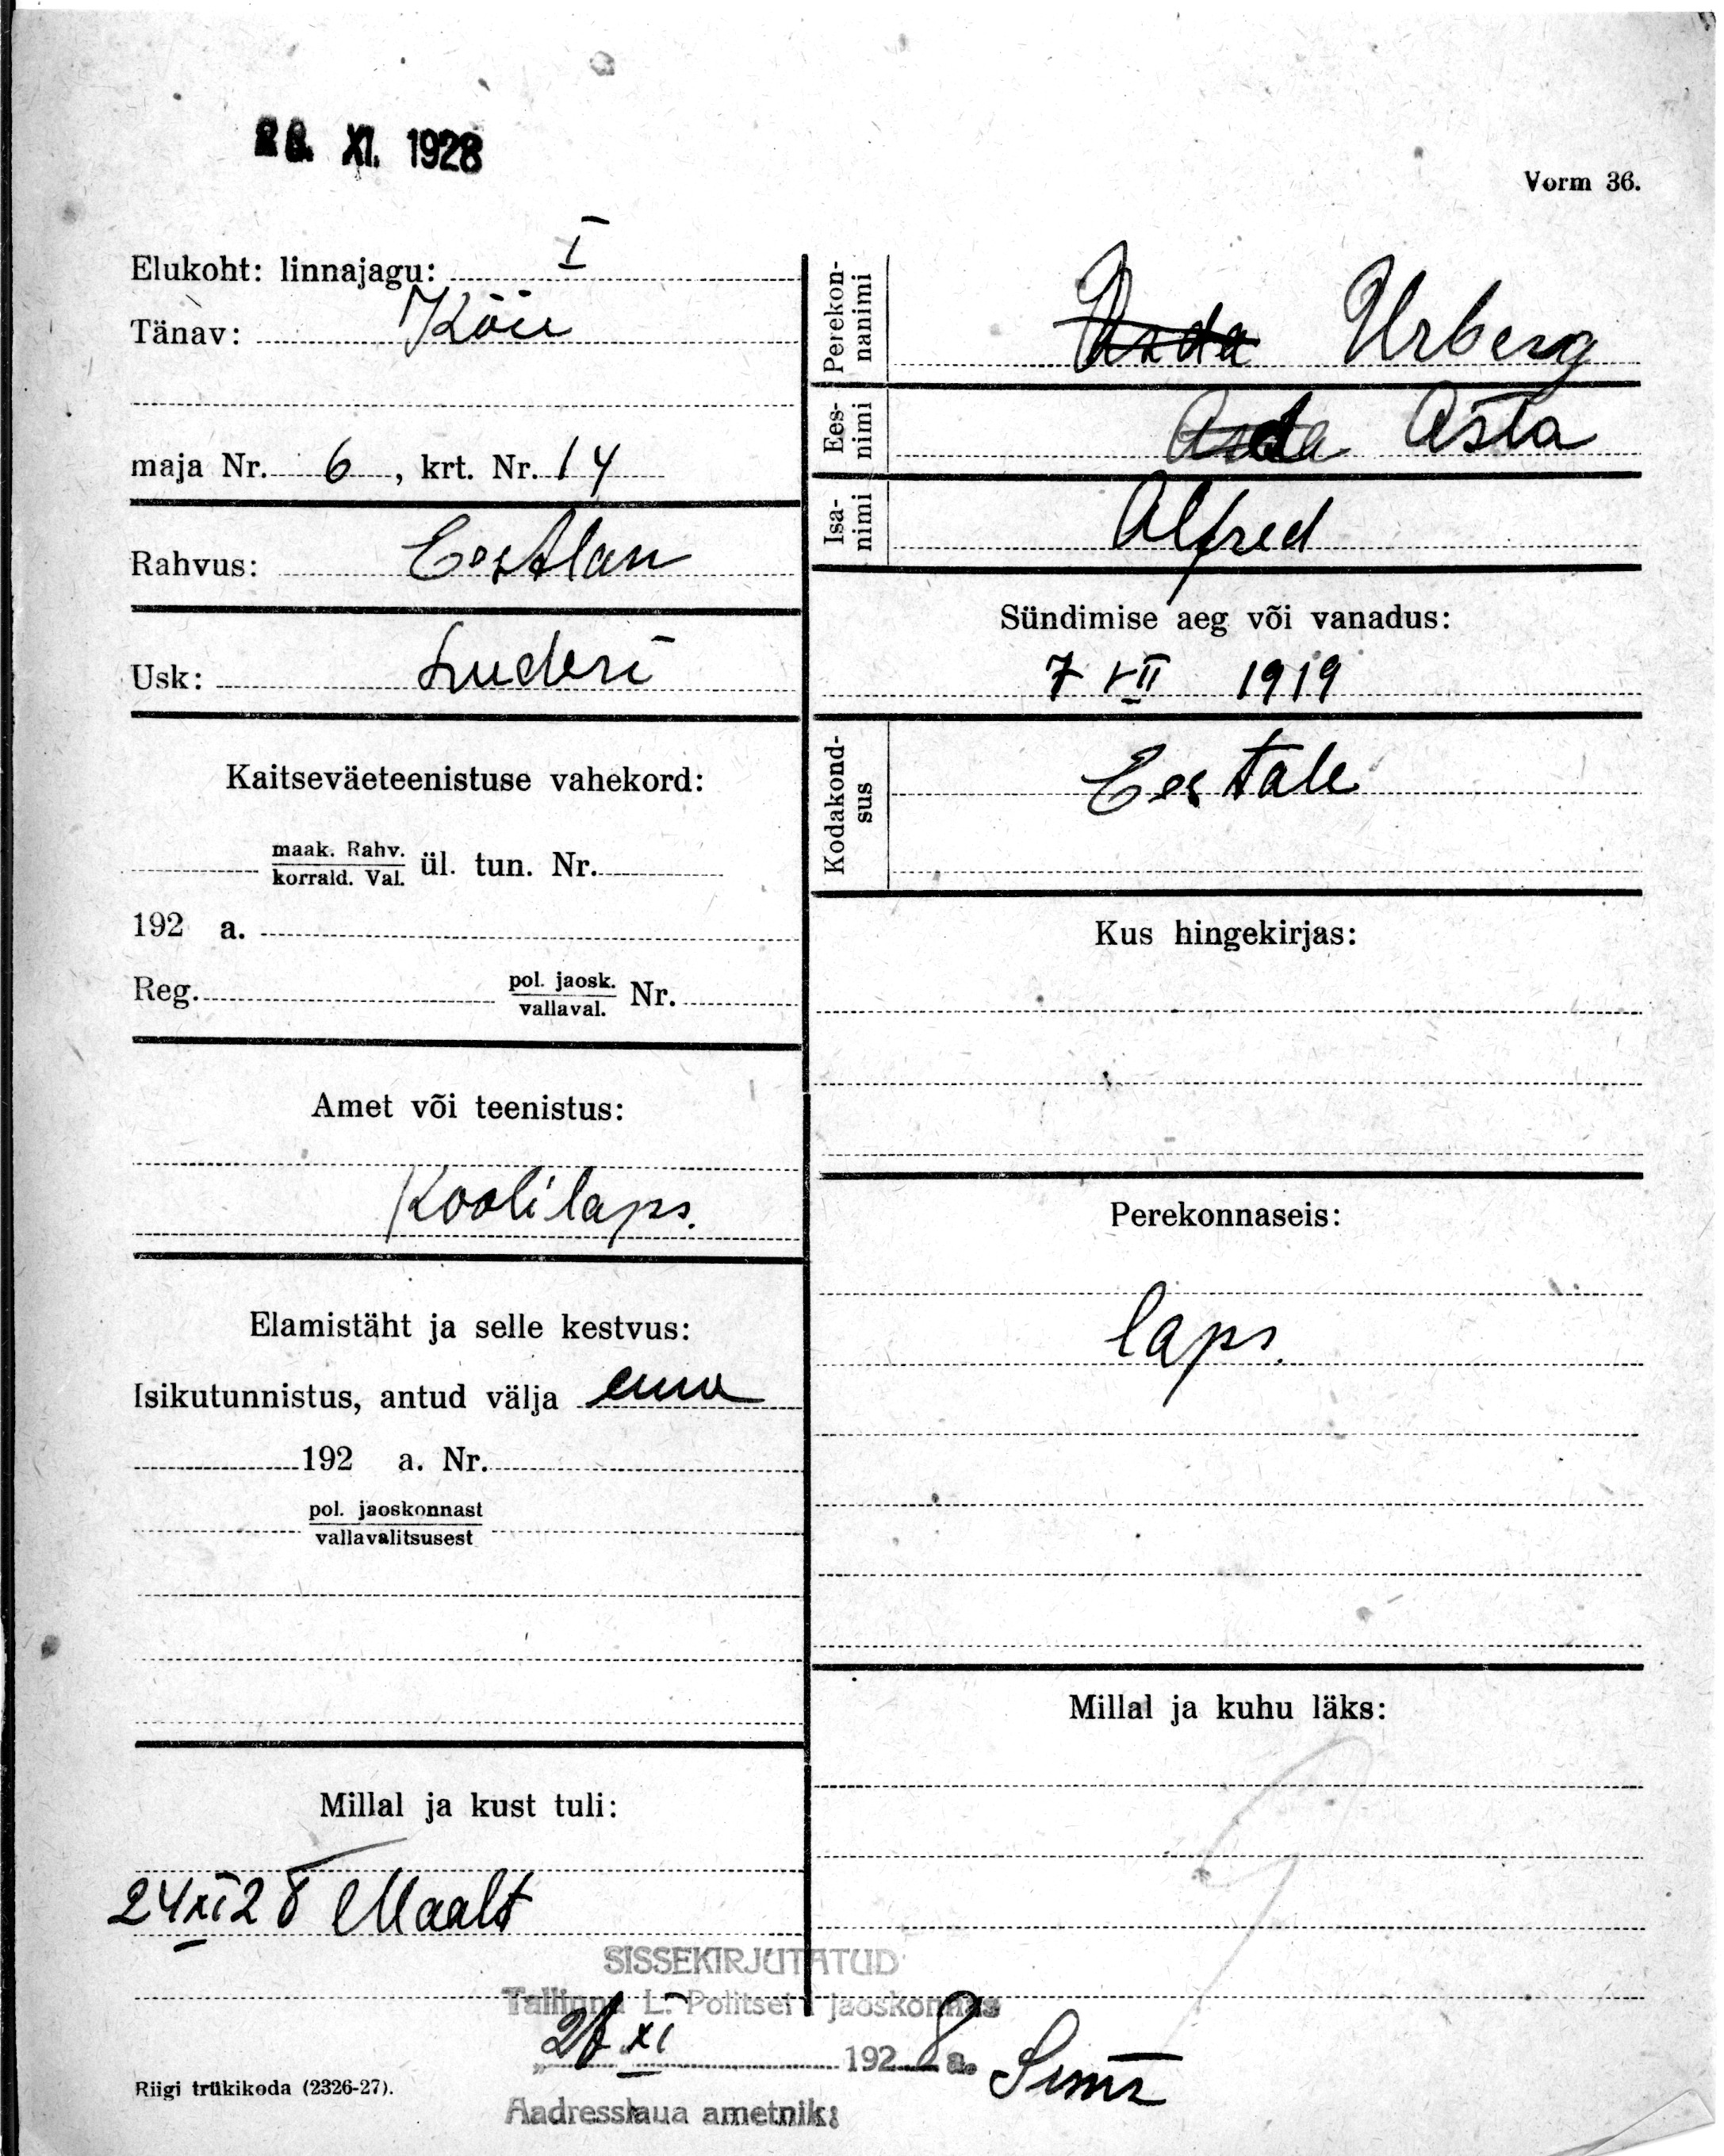 28. XI. 1928
Vorm 36.
Elukoht: linnajagu: I
Tänav: Köie
maja Nr. 6, krt. Nr. 14
Rahvus: Eestlan
Usk: Luderi
Kaitseväeteenistuse vahekord:
maak. Rahv.
korrald. Val. ül. tun. Nr.
192 a.
Reg. pol. jaosk.
vallaval. Nr.
Amet või teenistus:
Koolilaps.
Elamistäht ja selle kestvus:
Isikutunnistus, antud välja ema
192 a. Nr.
pol. jaoskonnast
vallavalitsusest
Millal ja kust tuli:
24 XI 28 Maalt
Perekon-
nanimi Urberg
Ees-
nimi Asta
Isa-
nimi Alfred
Sündimise aeg või vanadus:
7 VII 1919
Kodakond-
sus
Kus hingekirjas:
Perekonnaseis:
laps.
Millal ja kuhu läks:
SISSEKIRJUTATUD
Tallinna L. Politsei jaoskonnas
XI 1928 a.
Aadresslaua ametnik:
Riigi trükikoda (2326-27).